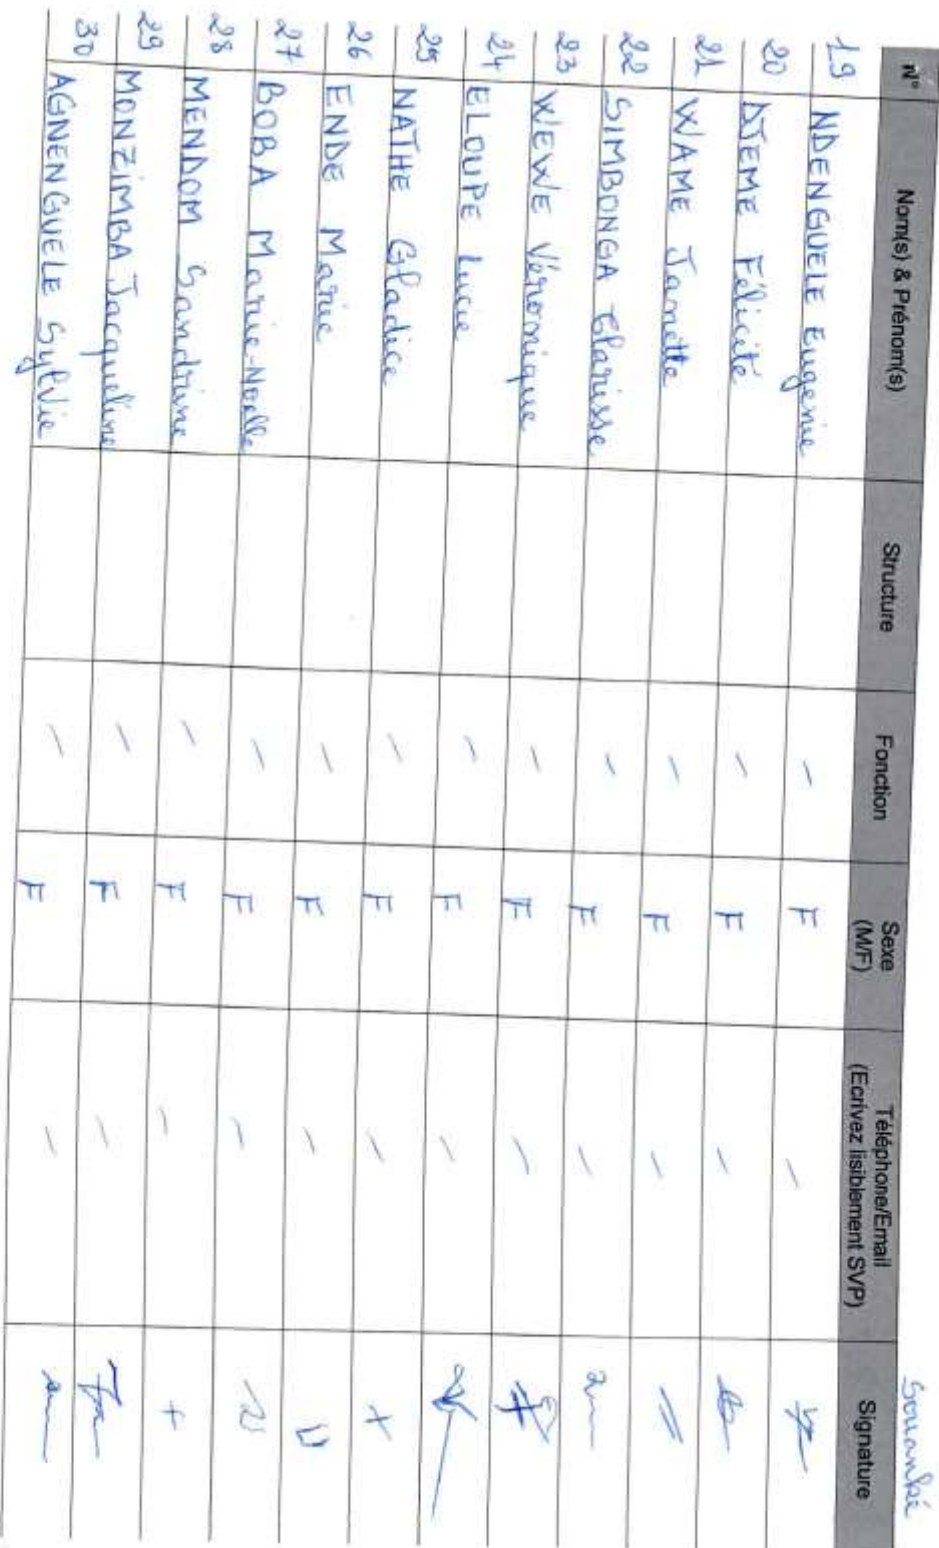 Souanké
N° Nom(s) & Prénom(s) Structure Fonction Sexe (M/F) Téléphone/Email (Ecrivez lisiblement SVP) Signature
19 NDENGUELE Eugenie - F -
20 DJEME Félicité - F -
21 WAME Janette - F -
22 SIMBONGA Clarisse - F -
23 WEWE Véronique - F -
24 ELOUPE Lucie - F -
25 NATHE Gladice - F -
26 ENDE Marie - F -
27 BOBA Marie-Noelle - F -
28 MENDOM Sandrine - F - +
29 MONZIMBA Jacqueline - F -
30 AGNENGUELE Sylvie - F -